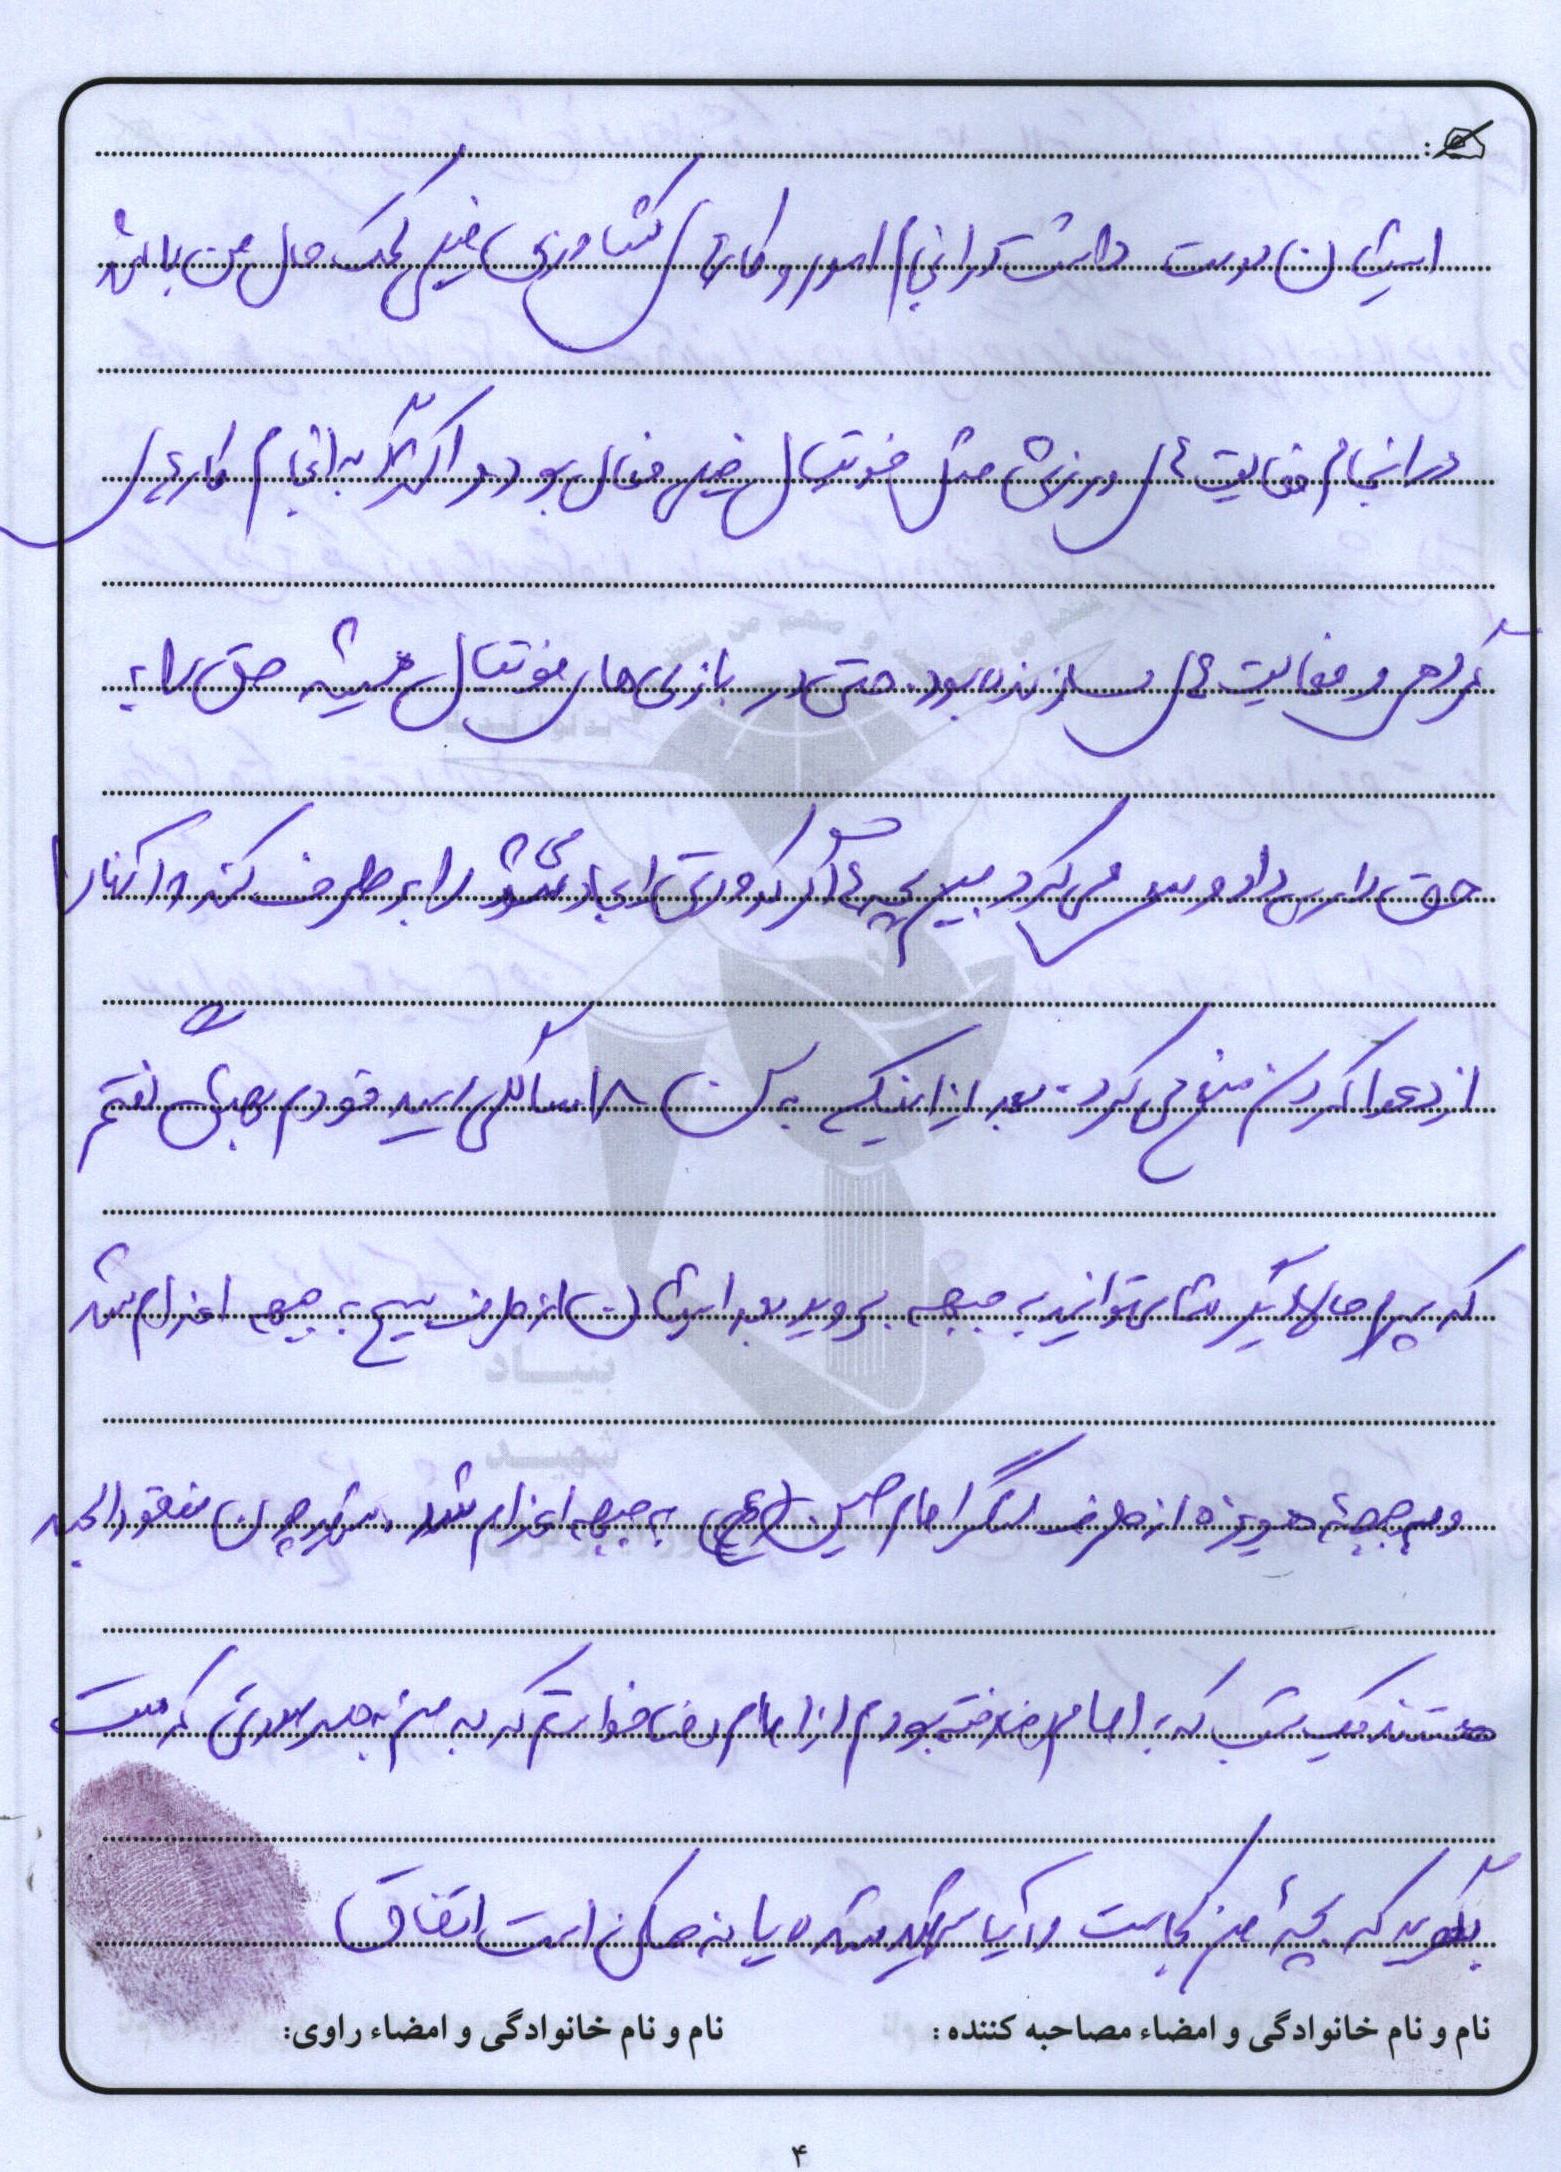 ایشان دوست داشت در انجام امور و کارهای کشاورزی خیلی کمک حال من باشد
در انجام فعالیت های ورزشی مثل فوتبال خیلی فعال بود و اکثراً به انجام کارهای
گروهی و فعالیت های سازنده بود. حتی در بازی های فوتبال همیشه حق را به
حق دار می داد و سعی می کرد بین بچه ها اگر کدورتی ایجاد می شود را بر طرف کند و آنها را
از دعوا کردن منع می کرد. بعد از اینکه به سن ۱۸ سالگی رسید خودم بهش گفتم
که پسرم حالا دیگر شما می توانید به جبهه بروید بعد ایشان از طرف بسیج به جبهه اعزام شد
و به جبهه هویزه از طرف لشگر امام حسین (ع) به جبهه اعزام شد. شهید چون مفقودالجسد
هستند یک شب که به امام رضا رفته بودم از امام رضا خواستم که به من به هر صورتی که هست
بگوید که بچه من کجاست و آیا شهید شده یا نه ممکن است اتفاق
نام و نام خانوادگی و امضاء مصاحبه کننده : نام و نام خانوادگی و امضاء راوی:
۴